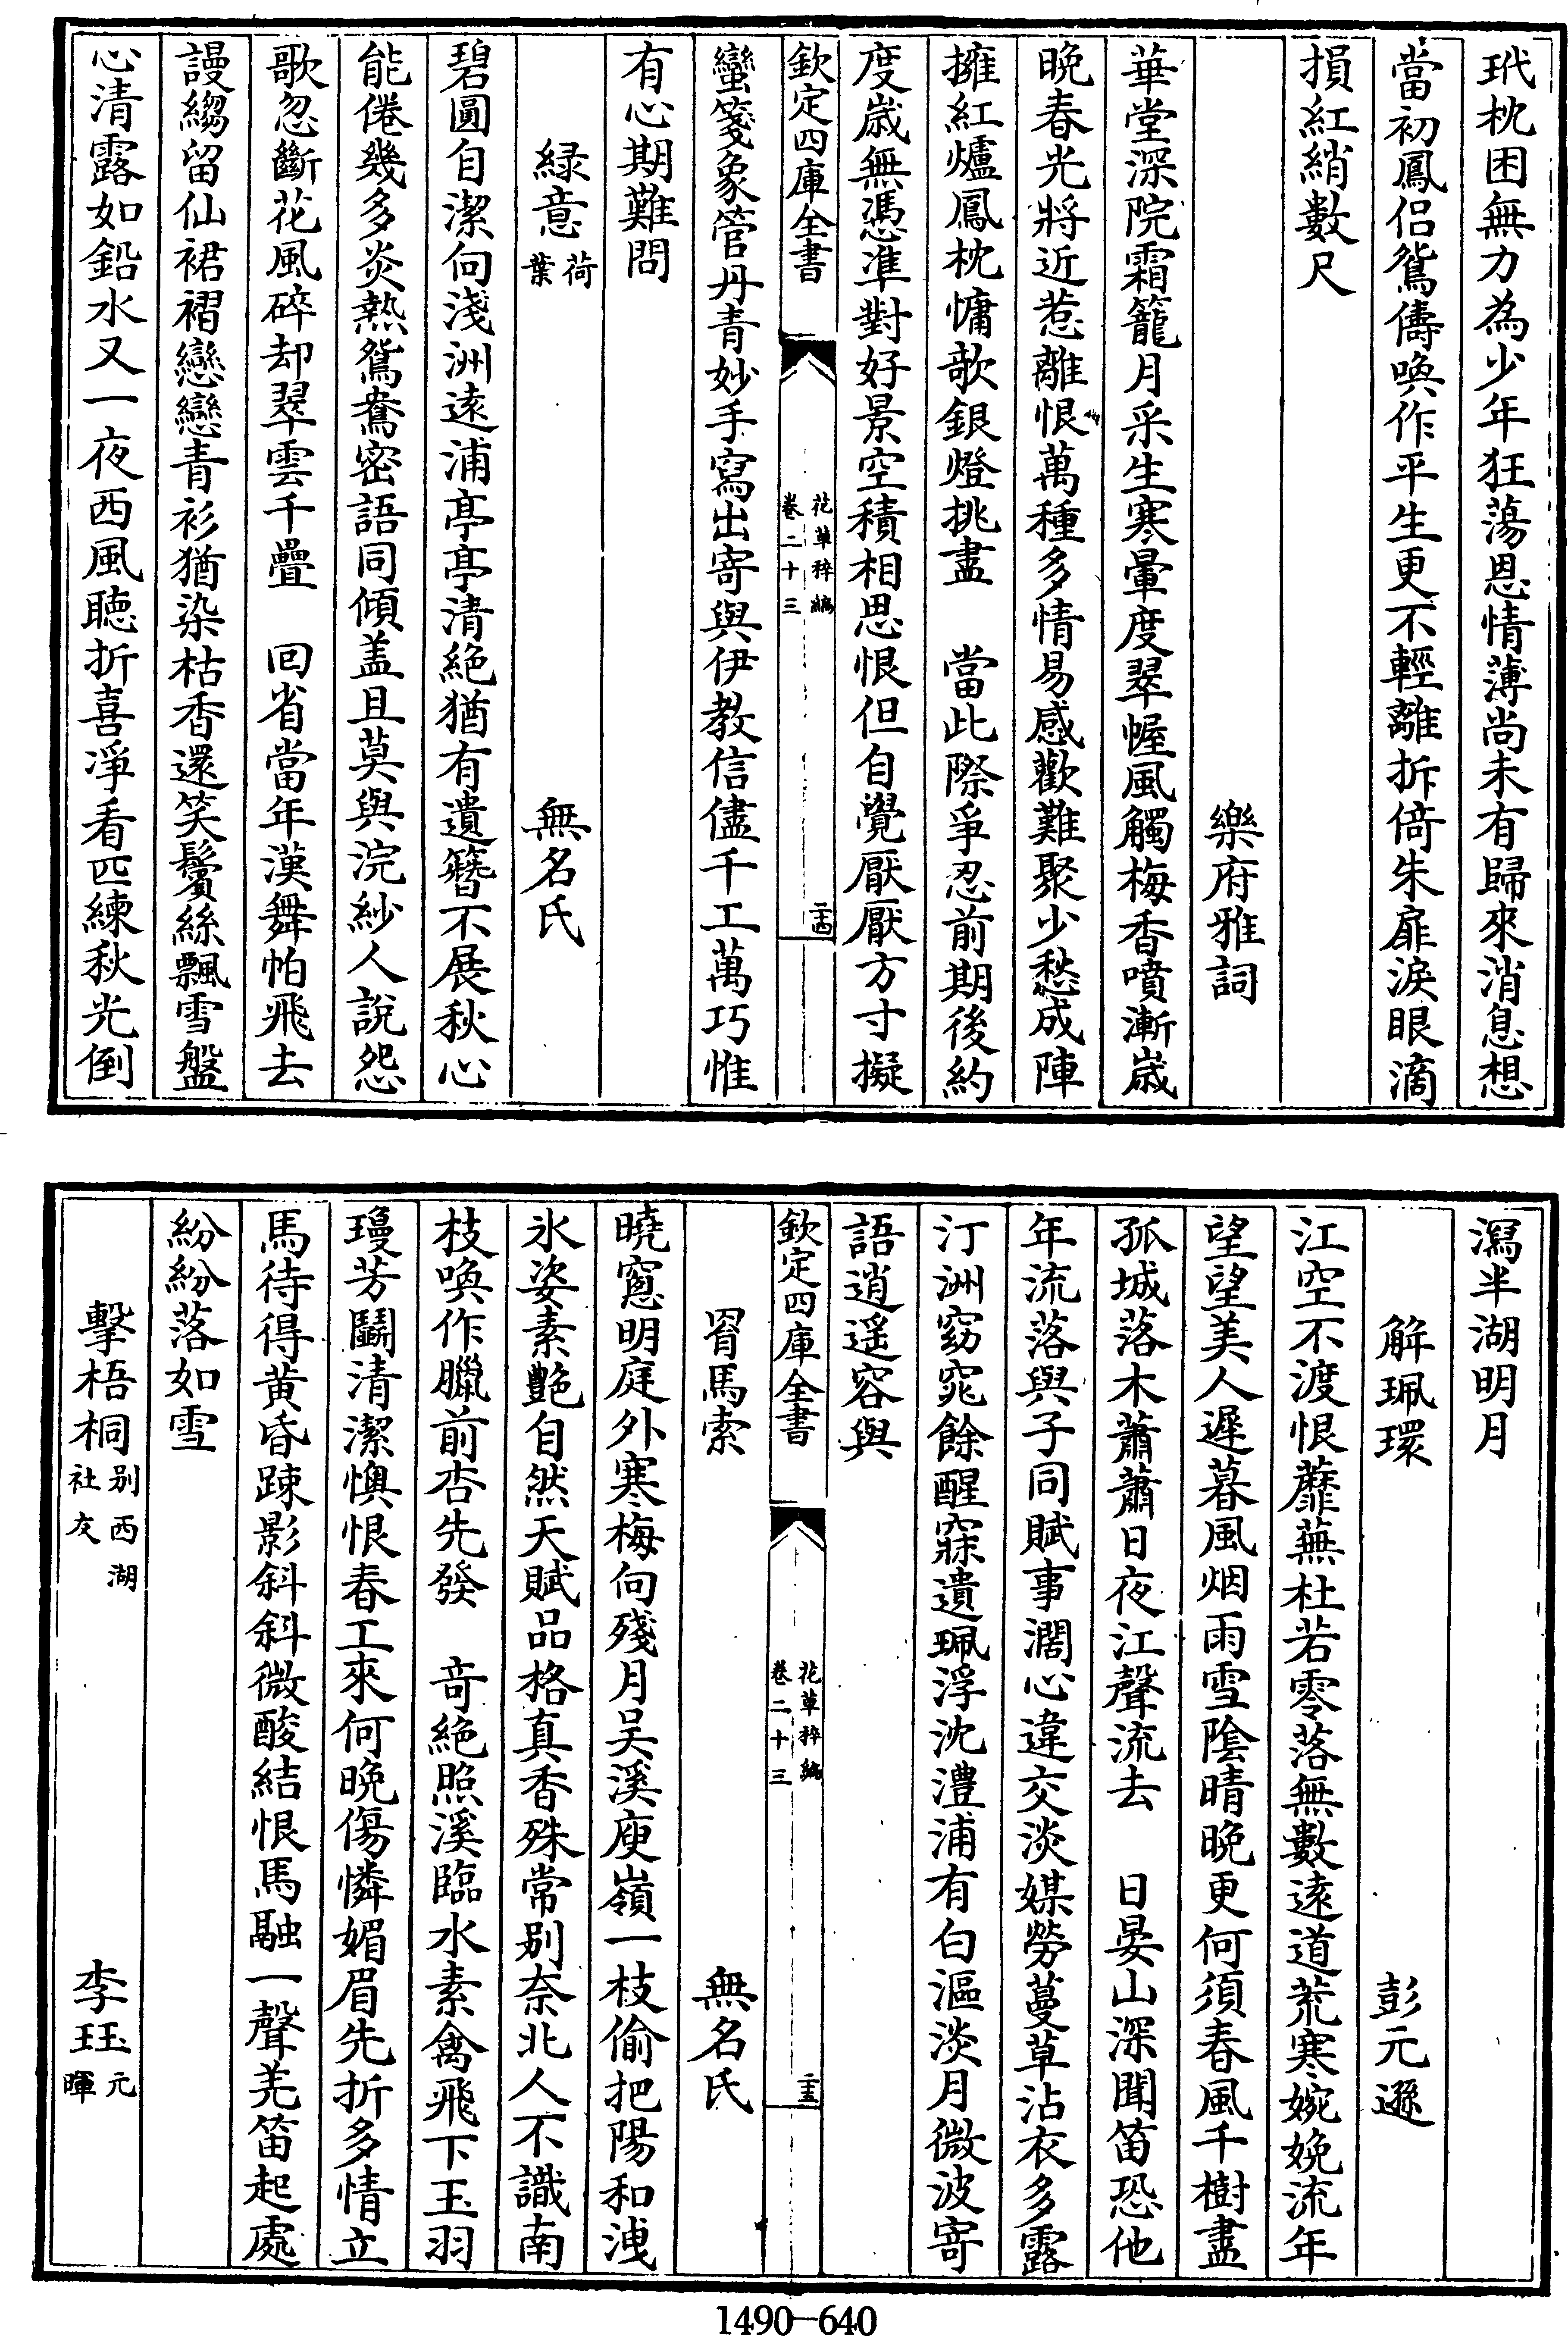 玳枕困無力為少年狂蕩恩情薄尚未有歸來消息想
當初鳳侶鴛儔喚作平生更不輕離拆倚朱扉淚眼滴
損紅綃數尺
樂府雅詞
華堂深院霜籠月采生寒暈度翠幄風觸梅香噴漸歲
晩春光將近惹離恨萬種多情易感歡難聚少愁成陣
擁紅爐鳳枕慵歌銀燈挑盡　當此際爭忍前期後約
度歲無憑準對好景空積相思恨但自覺厭厭方寸擬
欽定四庫全書
花草稡編
卷二十三
二十四
蠻箋象管丹青妙手寫出寄與伊教信儘千工萬巧惟
有心期難問
緑意荷葉　無名氏
碧圓自潔向淺洲遠浦亭亭清絶猶有遺簪不展秋心
能倦幾多炎熱鴛鴦密語同傾盖且莫與浣紗人說怨
歌忽斷花風碎却翠雲千疊　回省當年漢舞怕飛去
謾縐留仙裙褶戀戀青衫猶染枯香還笑鬢絲飄雪盤
心清露如鉛水又一夜西風聴折喜凈看匹練秋光倒
瀉半湖明月
解珮環　彭元遜
江空不渡恨蘼蕪杜若零落無數逺道荒寒婉娩流年
望望美人遲暮風烟雨雪陰晴晚更何須春風千樹盡
孤城落木蕭蕭日夜江聲流去　日晏山深聞笛恐他
年流落與子同賦事濶心違交淡媒勞蔓草沾衣多露
汀洲窈窕餘醒寐遺珮浮沈澧浦有白漚淡月微波寄
語逍遥容與
欽定四庫全書
花草稡編
卷二十三
二十五
罥馬索　無名氏
曉窻明庭外寒梅向殘月吴溪庾嶺一枝偷把陽和洩
氷姿素艶自然天賦品格真香殊常别奈北人不識南
枝喚作臘前杏先發　竒絶照溪臨水素禽飛下玉羽
瓊芳鬭清潔懊恨春工來何晩傷憐媚眉先折多情立
馬待得黄昏踈影斜斜微酸結恨馬融一聲羌笛起處
紛紛落如雪
擊梧桐别西湖社友　李珏元暉
1490-640